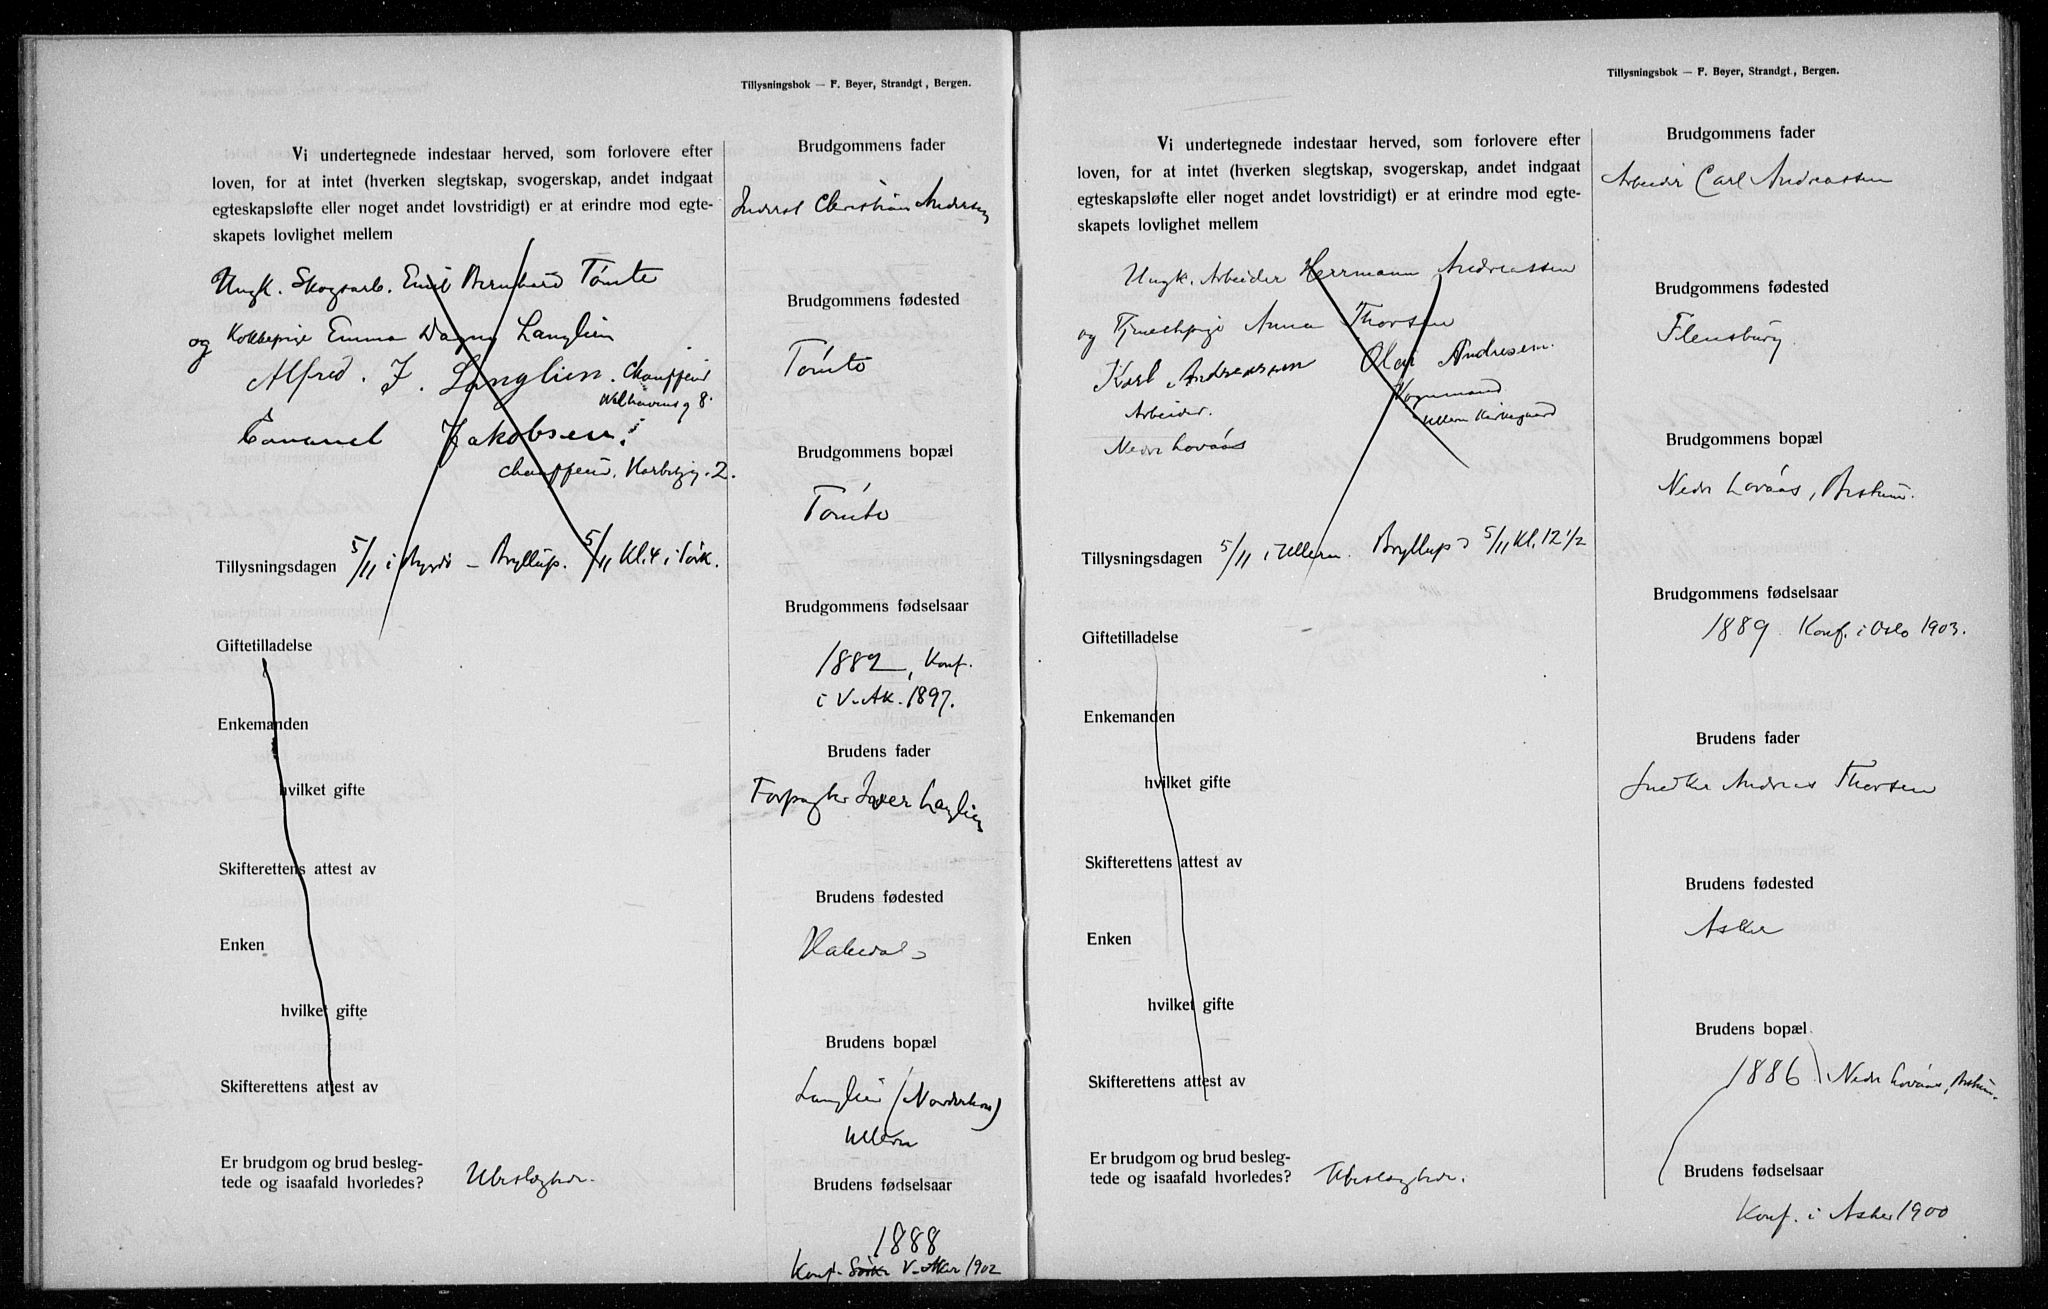 Tillysningsbok — F. Beyer, Strandgt, Bergen.
Vi undertegnede indestaar herved, som forlovere efter
loven, for at intet (hverken slegtskap, svogerskap, andet indgaat
egteskapsløfte eller noget andet lovstridigt) er at erindre mod egte-
skapets lovlighet mellem
Ungk. Skogsarb. Emil Bernhard Tømte
og Kokkepige Emma Dagny Langlien
Alfred. J. Langlien. Chauffeur
Welhavensg 8.
Emanuel Jakobsen
chauffeur. 2.
Tillysningsdagen 5/11 i Bygdø — Bryllup. 5/11 Kl. 4 i
Giftetilladelse
Enkemanden
hvilket gifte
Skifterettens attest av
Enken
hvilket gifte
Skifterettens attest av
Er brudgom og brud besleg-
tede og isaafald hvorledes? Ubeslægtede.
Brudgommens fader
Christian Andersen
Brudgommens fødested
Tømte
Brudgommens bopæl
Tømte
Brudgommens fødselsaar
1882, Konf.
i V. Ak. 1897.
Brudens fader
Forpagter Iver Langlien
Brudens fødested
Hakedal
Brudens bopæl
Langlien (Norderhov)
Ullern
Brudens fødselsaar
1888
Konf. V. Aker 1902
Tillysningsbok — F. Beyer, Strandgt., Bergen.
Vi undertegnede indestaar herved, som forlovere efter
loven, for at intet (hverken slegtskap, svogerskap, andet indgaat
egteskapsløfte eller noget andet lovstridigt) er at erindre mod egte-
skapets lovlighet mellem
Ungk. Arbeider Herrmann Andreassen
og Tjenestepige Anna Thorsen
Karl Andreassen Olai Andresen.
Arbeider. Vognmand
Nedre Lovaas Ullern Kirkegaard
Tillysningsdagen 5/11 i Ullern. Bryllup 5/11 Kl. 12 1/2
Giftetilladelse
Enkemanden
hvilket gifte
Skifterettens attest av
Enken
hvilket gifte
Skifterettens attest av
Er brudgom og brud besleg-
tede og isaafald hvorledes? Ubeslægtede.
Brudgommens fader
Arbeider Carl Andreassen
Brudgommens fødested
Flensburg.
Brudgommens bopæl
Nedre Lovaas, Bestum.
Brudgommens fødselsaar
1889. Konf. i Oslo 1903.
Brudens fader
Snedker Andreas Thorsen
Brudens fødested
Asker
Brudens bopæl
1886 Nedre Lovaas, Bestum.
Brudens fødselsaar
Konf. i Asker 1900